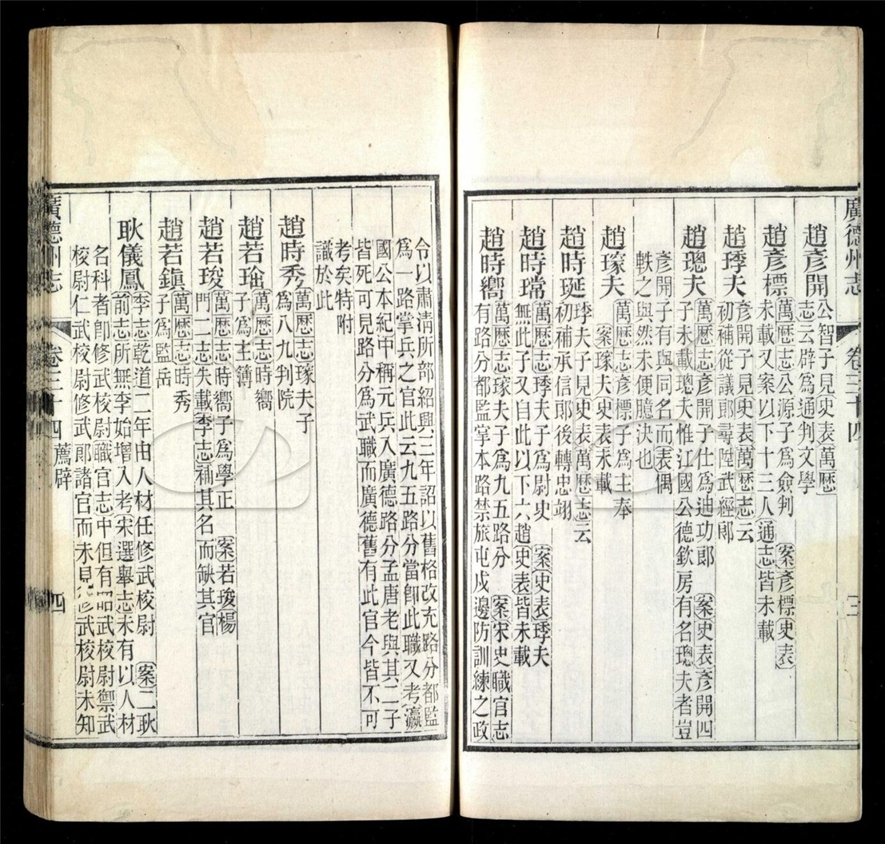 廣德州志 卷三十四 三
趙彥開 公智子見史表萬歷
志云辟為通判文學
趙彥標 萬歷志公源子為僉判 案彥標史表
未載又案以下十三人通志皆未載
趙夫 彥開子見史表萬歷志云
初補從議郎尋陞武經郎
趙璁夫 萬歷志彥開子仕為迪功郎 案史表彥開四
子未載璁夫惟江國公德欽房有名璁夫者豈
彥開子有與同名而表偶
軼之與然未便臆決也
趙瑑夫 萬歷志彥標子為主奉
案瑑夫史表未載
趙時珽 夫子見史表萬歷志云
初補承信郎後轉忠翊
趙時瑺 萬歷志夫子為尉史 案史表夫
無此子又自此以下六趙史表皆未載
趙時嚮 萬歷志瑑夫子為九五路分 案宋史職官志
有路分都監掌本路禁旅屯戍邊防訓練之政
令以肅清所部紹興三年詔以舊格改充路分都監
為一路掌兵之官此云九五路分當卽此職又考瀛
國公本紀中稱元兵入廣德路分孟唐老與其二子
皆死可見路分為武職而廣德舊有此官今皆不可
考矣特附
識於此
趙時秀 萬歷志瑑夫子
為八九判院
趙若 萬歷志時嚮
子為主簿
趙若 萬歷志時嚮子為學正 案若楊
門二志失載李志補其名而缺其官
趙若鎮 萬歷志時秀
子為監岳
耿儀鳳 李志乾道二年由人材任修武校尉 案二耿
前志所無李始增入考宋選舉志未有以人材
名科者卽修武校尉職官志中但有昭武校尉禦武
校尉仁武校尉修武郎諸官而未見修武校尉未知
廣德州志 卷三十四 薦辟 四